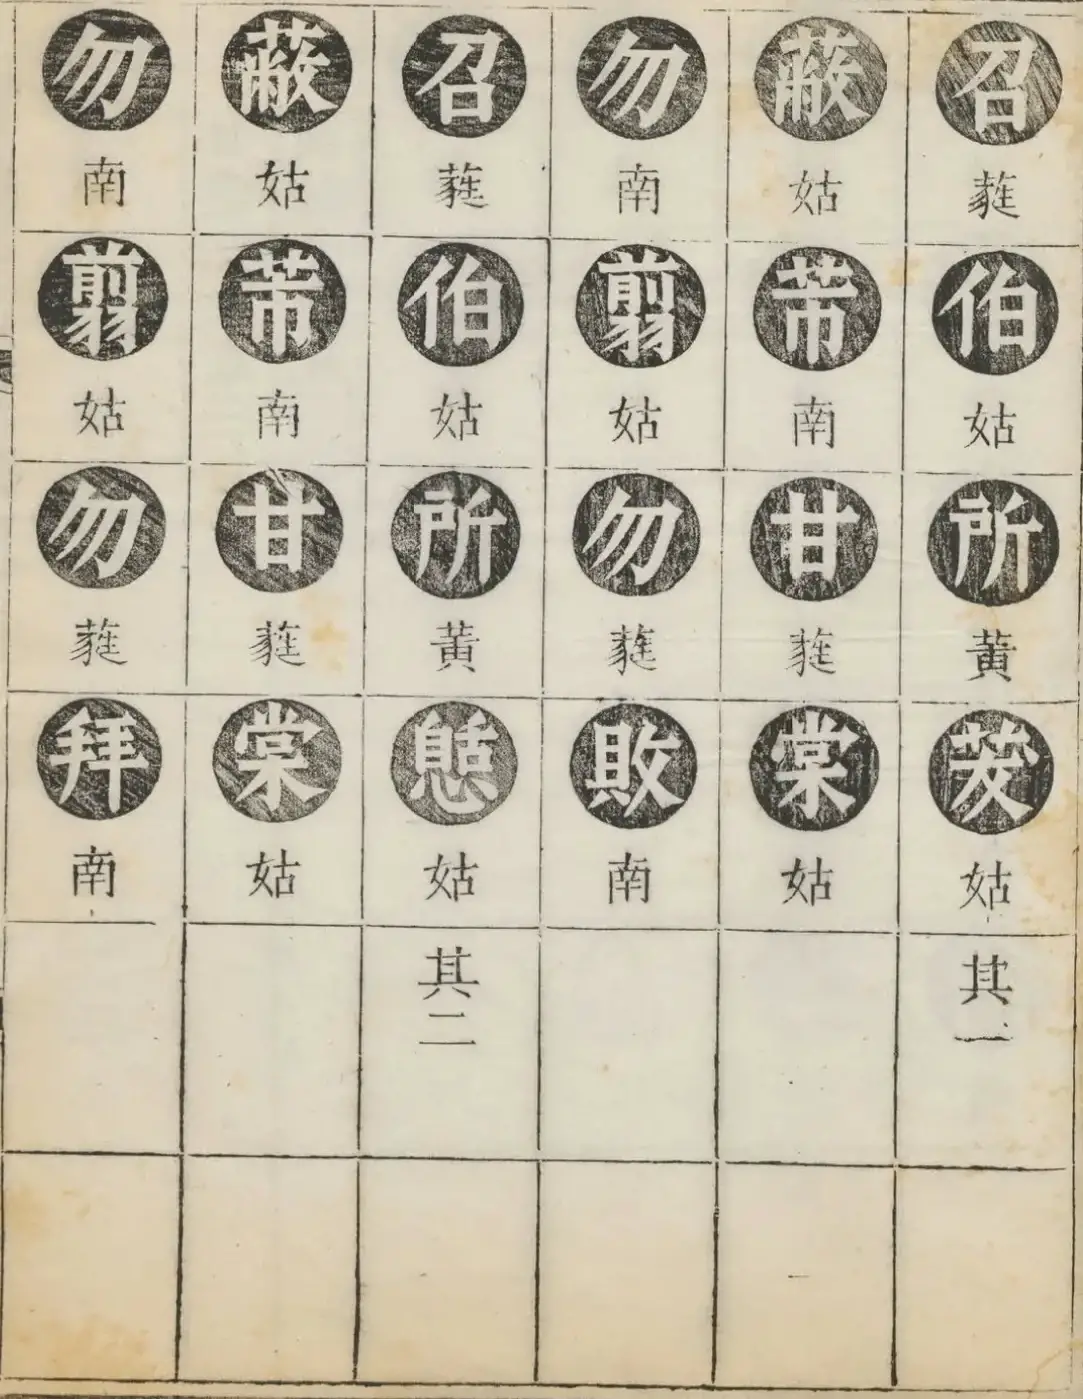 召蕤伯姑所黄茇姑其一
蔽姑芾南甘蕤棠姑
勿南翦姑勿蕤敗南
召蕤伯姑所黄憩姑其二
蔽姑芾南甘蕤棠姑
勿南翦姑勿蕤拜南